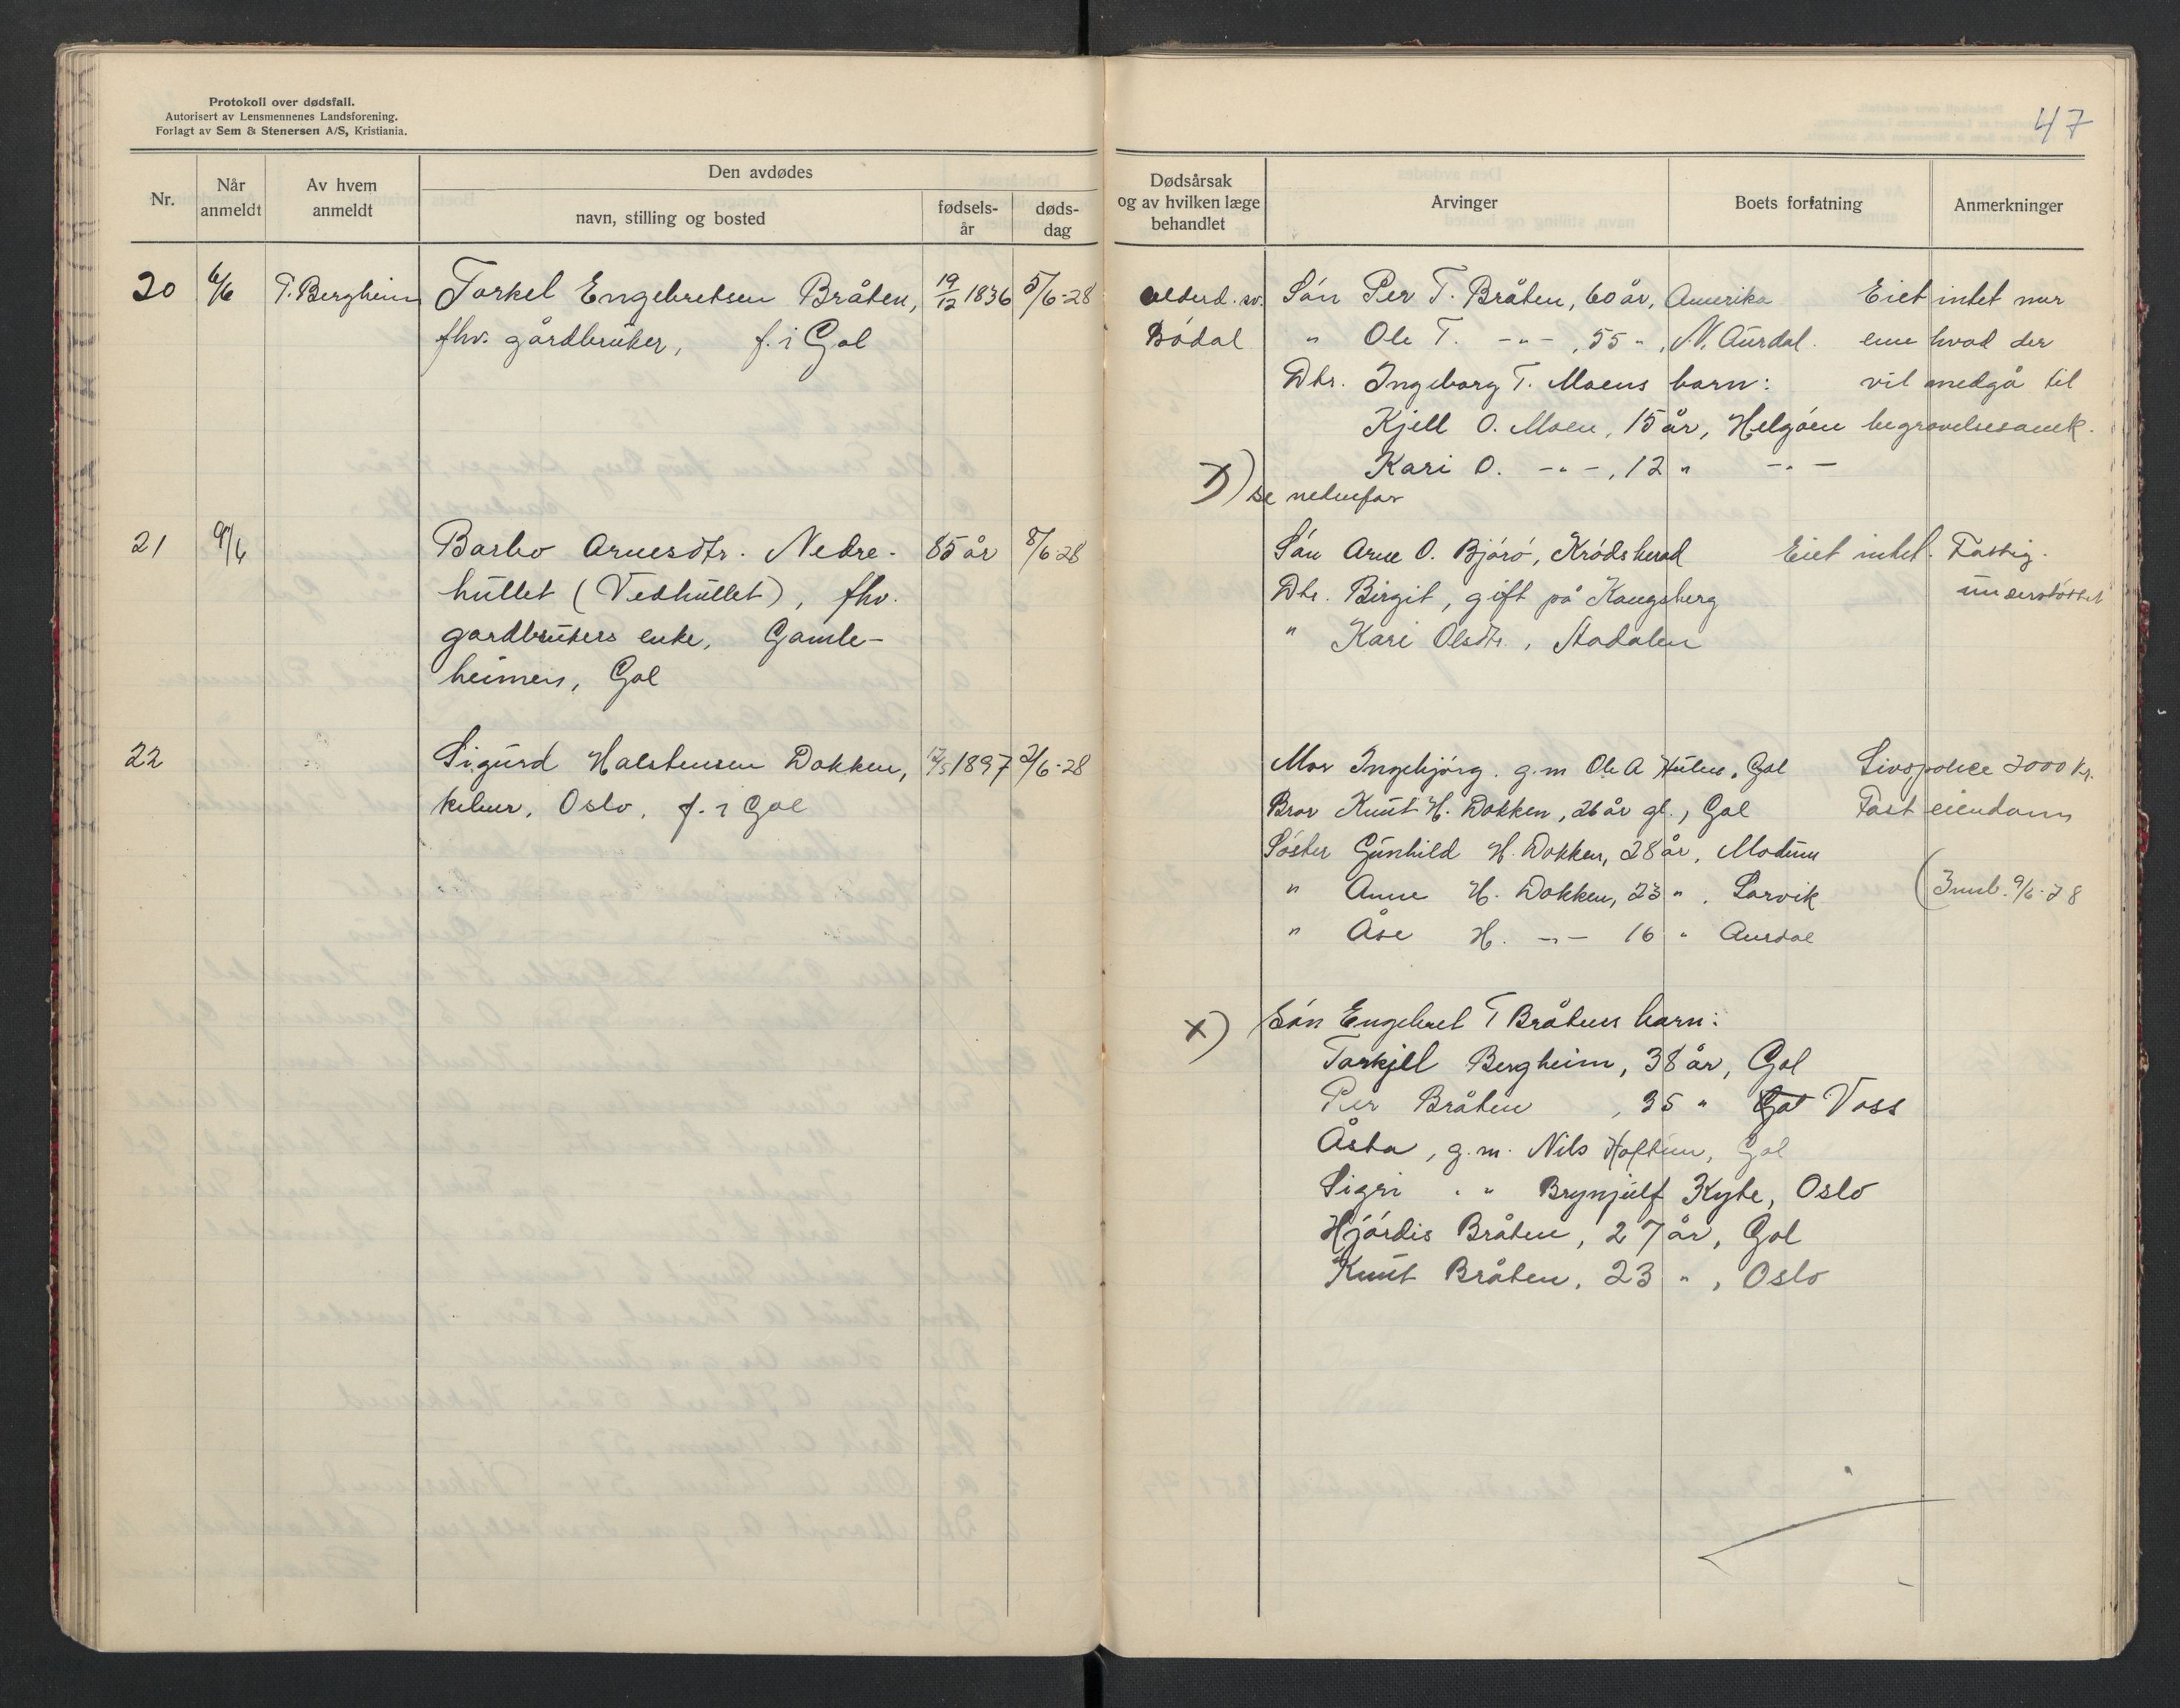 Protokoll over dødsfall.
Autorisert av Lensmennenes Landsforening.
Forlagt av Sem & Stenersen A/S, Kristiania.
Nr.
Når anmeldt
Av hvem anmeldt
Den avdødes
navn, stilling og bosted
fødsels-år
døds-dag
20 6/6 T. Bergheim Torkel Engebretsen Bråten, 19/12 1836 5/6-28
fhv. gårdbruker, f. i Gol
21 9/6 Barbo Arnesdtr. Nedre- 85 år 8/6-28
hullet (Vedhullet), fhv.
gardbrukers enke, Gamle-
heimen, Gol
22 Sigurd Halstensen Dokken, 17/5 1897 2/6-28
kelner, Oslo, f. i Gol
47
Dødsårsak og av hvilken læge behandlet
Arvinger
Boets forfatning
Anmerkninger
alderd. sv. Sön Per T. Bråten, 60 år, Amerika Eiet intet mer
Bödal " Ole T. -"-, 55 ", N. Aurdal. enn hvad der
Dtr. Ingeborg T. Moens barn: vil medgå til
Kjell O. Moen, 15 år, Helgöen begravelsesomk.
Kari O. -"-, 12 " -"-
x) se nedenfor
Sön Arne O. Björö, Krödsherad Eiet intet. Fattig-
Dtr. Birgit, gift på Kongsberg understöttet
" Kari Olsdtr., Aadalen
Mor Ingebjörg. g.m Ole A Hulen, Gol Livspolice 2000 kr.
Bror Knut H. Dokken, 26 år gl., Gol Fast eiendom
Söster Gunhild H. Dokken, 28 år, Modum
" Anne H. Dokken, 23 ", Larvik (Innb. 9/6-28
" Åse H. -"- 16 " Aurdal
x) Sön Engebret T Bråtens barn:
Torkjell Bergheim, 38 år, Gol
Per Bråten, 35 " Gol Voss
Åsta, g.m. Nils Hoftun, Gol
Sigri " " Brynjulf Kyte, Oslo
Hjördis Bråten, 27 år, Gol
Knut Bråten, 23 ", Oslo